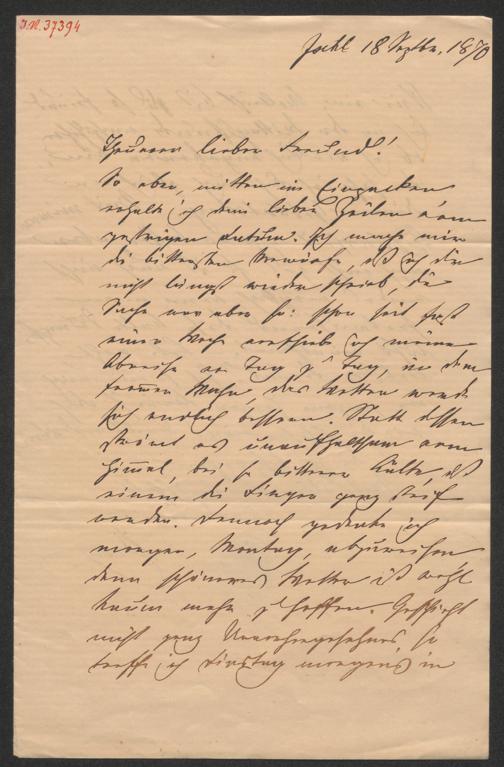 I.N. 37394
Ischl 18 Septbr. 1870
Theurer lieber Freund!
So eben, mitten im Einpacken
erhalte ich dein lieben Zeilen vom
gestrigen Datum. Ich mache mir
die bittersten Vorwürfe, daß ich dir
nicht längst wieder schrieb, die
Sache war aber so: schon seit fast
einer Woche verschiebe ich meine
Abreise von Tag zu Tag, in dem
frommen Wahn, das Wetter werde
sich endlich bessern. Statt dessen
strömt es unaufhaltsam vom
Himmel, bei so bitterer Kälte, daß
einem die Finger ganz steif
werden. Dennoch gedenke ich
morgen, Montag, abzureisen,
denn schöneres Wetter ist wohl
kaum mehr zu hoffen. Geschieht
nicht ganz Unvorhergesehenes, so
treffe ich Dinstag morgens in